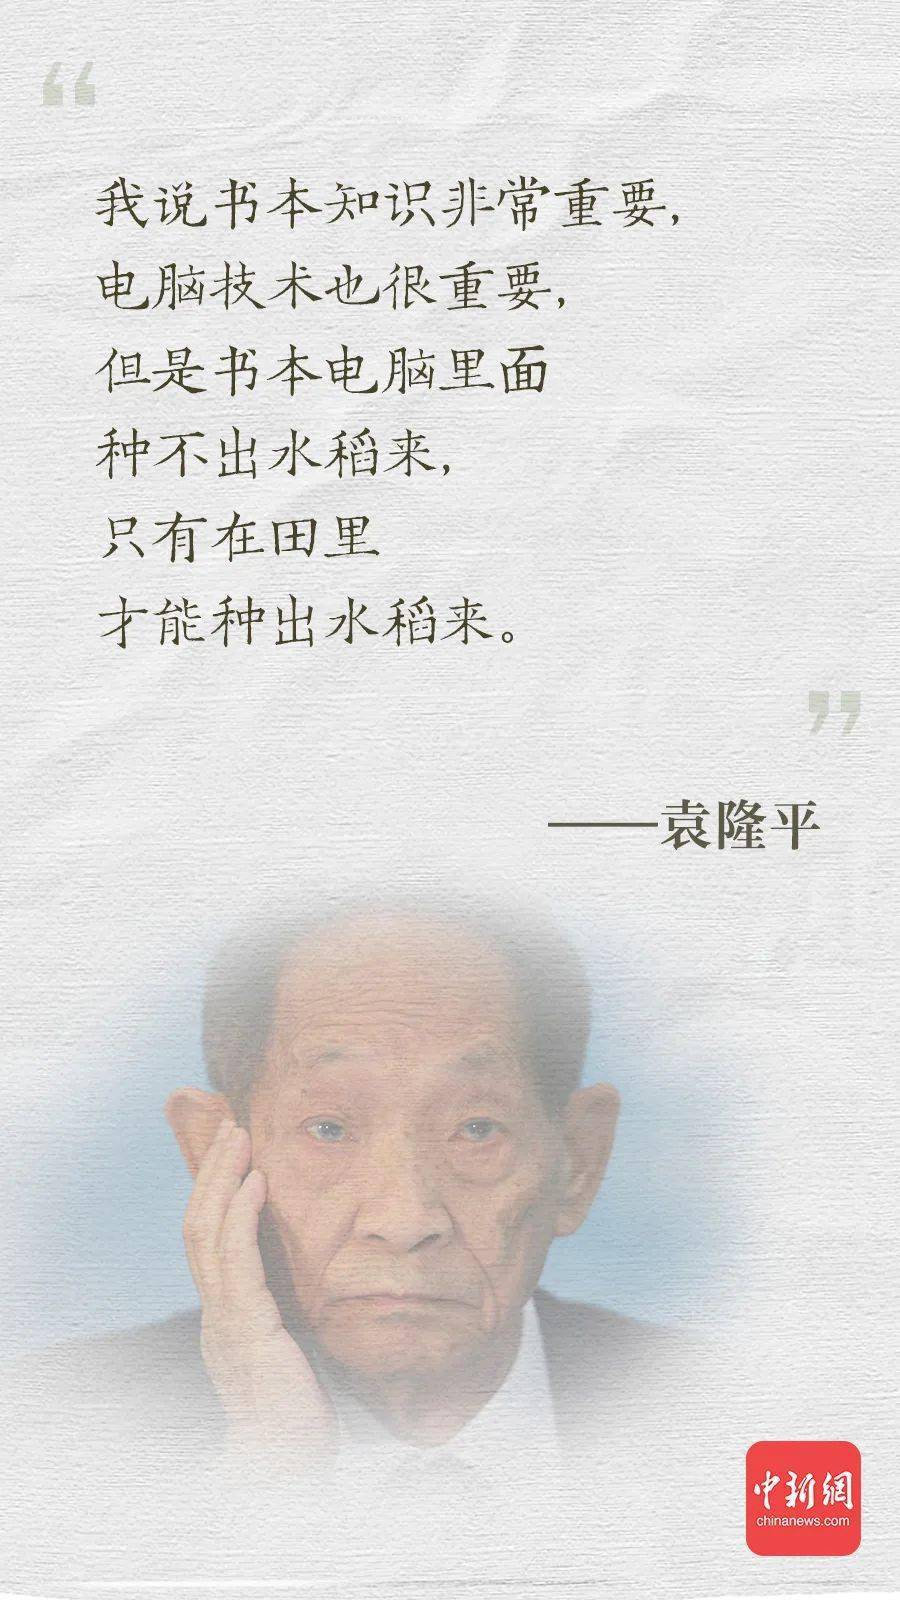 “
我说书本知识非常重要,
电脑技术也很重要,
但是书本电脑里面
种不出水稻来,
只有在田里
才能种出水稻来。
”
——袁隆平
中新網
chinanews.com